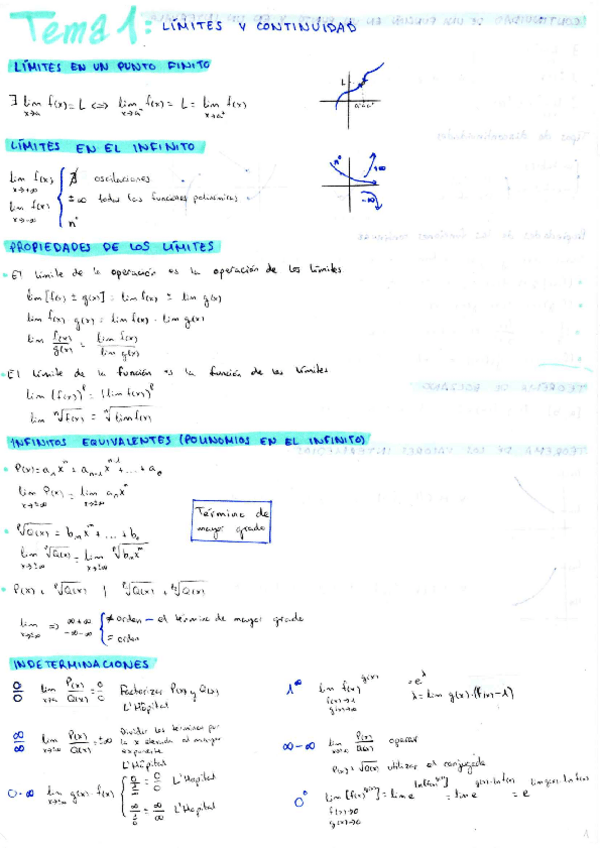 Tema 1: LÍMITES Y CONTINUIDAD
LÍMITES EN UN PUNTO FINITO
∃ lim f(x) = L ⇔ lim f(x) = L = lim f(x)
x→a x→a⁻ x→a⁺
L
a⁻ a a⁺
LÍMITES EN EL INFINITO
lim f(x)
x→+∞
lim f(x)
x→-∞
∄ oscilaciones
±∞ todas las funciones polinómicas
nº
nº
+∞
-∞
PROPIEDADES DE LOS LÍMITES
• El límite de la operación es la operación de los límites
lim [f(x) ± g(x)] = lim f(x) ± lim g(x)
lim f(x) · g(x) = lim f(x) · lim g(x)
lim f(x)/g(x) = lim f(x)/lim g(x)
• El límite de la función es la función de los límites
lim (f(x))ᵏ = (lim f(x))ᵏ
lim ⁿ√f(x) = ⁿ√lim f(x)
INFINITOS EQUIVALENTES (POLINOMIOS EN EL INFINITO)
• P(x) = aₙxⁿ + aₙ₋₁xⁿ⁻¹ + ... + a₀
lim P(x) = lim aₙxⁿ
x→±∞ x→±∞
Término de
mayor grado
• ᵖ√Q(x) = bₘxᵐ + ... + b₀
lim ᵖ√Q(x) = lim ᵖ√bₘxᵐ
x→±∞ x→±∞
• P(x) ± ᵖ√Q(x) | ᵖ¹√Q(x) ± ᵖ²√Q(x)
lim ⇒ ∞+∞
x→±∞ -∞-∞
≠ orden — el término de mayor grado
= orden
INDETERMINACIONES
0/0 lim P(x)/Q(x) = 0/0 Factorizar P(x) y Q(x)
x→a L'Hôpital
1^∞ lim f(x)^g(x) = e^λ
f(x)→1
g(x)→∞
λ = lim g(x)·(f(x)-1)
∞/∞ lim P(x)/Q(x) = ±∞ Dividir los términos por
x→±∞ la x elevada al mayor
exponente
L'Hôpital
∞-∞ lim P(x)/Q(x) operar
P(x) ± √Q(x) utilizar el conjugado
0·∞ lim g(x)·f(x)
x→±∞
= 0/0 L'Hopital
= ∞/∞ L'Hopital
0⁰ lim [f(x)^g(x)] = lim e^ln(f(x)^g(x)) = lim e^g(x)·ln f(x) = e^lim g(x)·ln f(x)
f(x)→0
g(x)→0